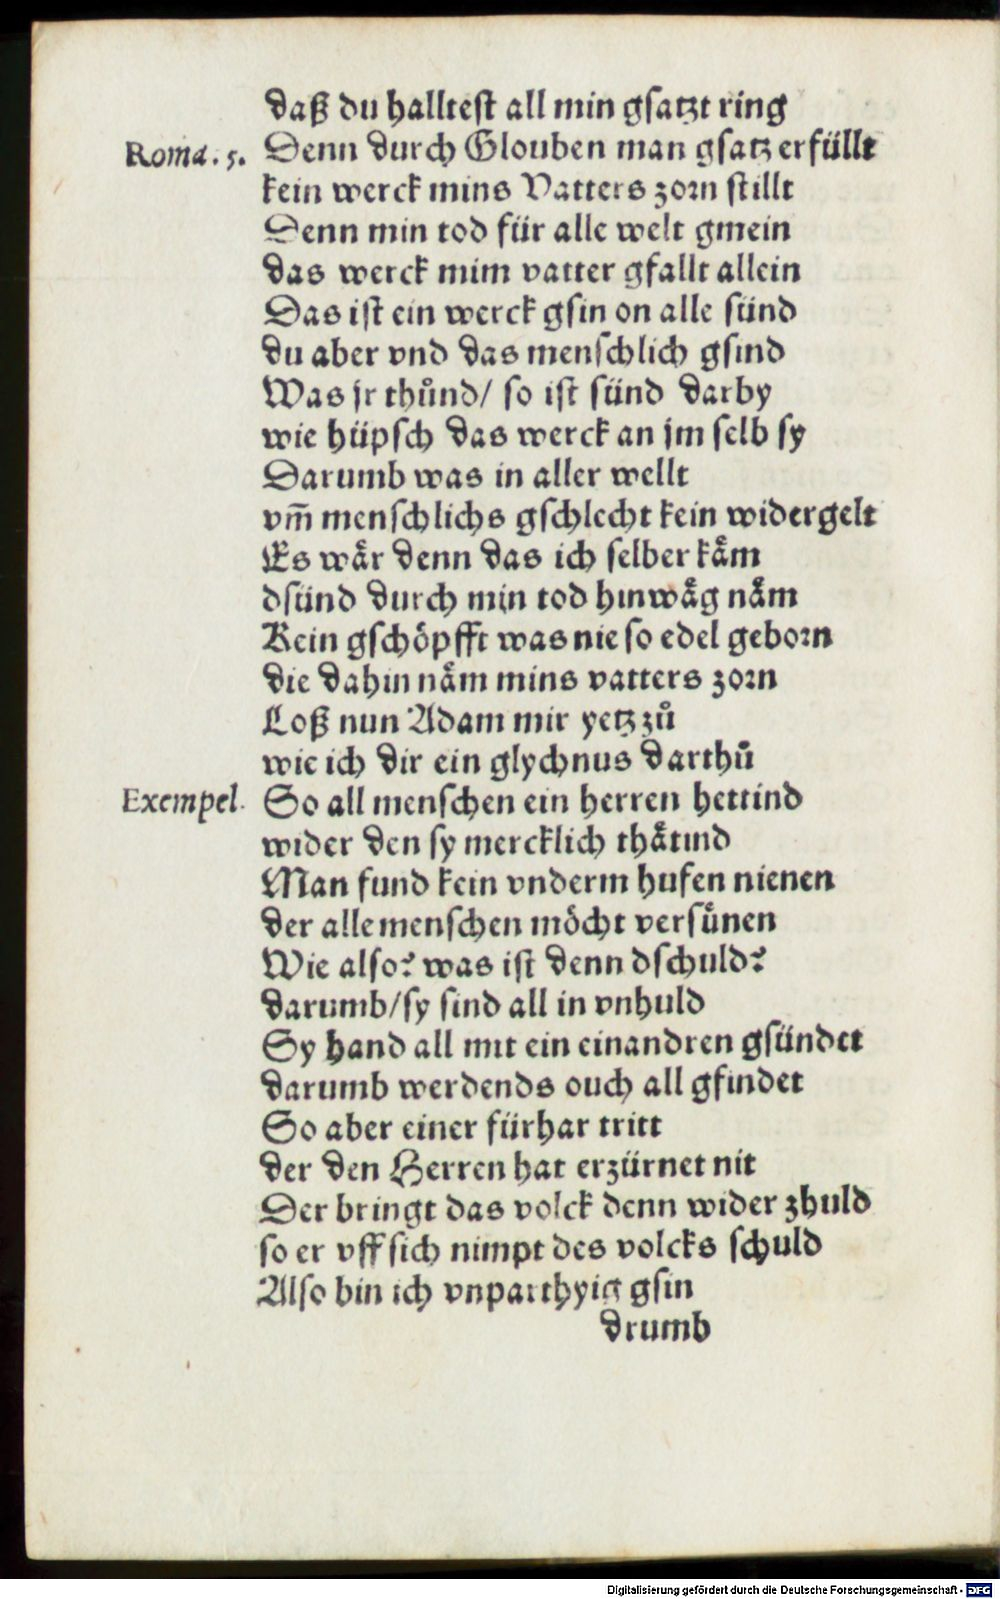 daß du halltest all min gsatzt ring
Roma. 5. Denn durch Glouben man gsatz erfüllt
kein werck mins Vatters zorn stillt
Denn min tod für alle welt gmein
das werck mim vatter gfallt allein
Das ist ein werck gsin on alle sünd
du aber vnd das menschlich gsind
Was jr thuͦnd/ so ist sünd darby
wie hüpsch das werck an jm selb sy
Darumb was in aller wellt
vm̄ menschlichs gschlecht kein widergelt
Es waͤr denn das ich selber kaͤm
dsünd durch min tod hinwaͤg naͤm
Kein gschoͤpfft was nie so edel geborn
die dahin naͤm mins vatters zorn
Loß nun Adam mir yetz zuͦ
wie ich dir ein glychnus darthuͦ
Exempel. So all menschen ein herren hettind
wider den sy mercklich thaͤtind
Man fund kein vnderm hufen nienen
der alle menschen moͤcht versuͤnen
Wie also? was ist denn dschuld?
darumb/sy sind all in vnhuld
Sy hand all mit ein einandren gsündet
darumb werdends ouch all gfindet
So aber einer fürhar tritt
der den Herren hat erzürnet nit
Der bringt das volck denn wider zhuld
so er vff sich nimpt des volcks schuld
Also bin ich vnparthyig gsin
drumb
Digitalisierung gefördert durch die Deutsche Forschungsgemeinschaft - DFG